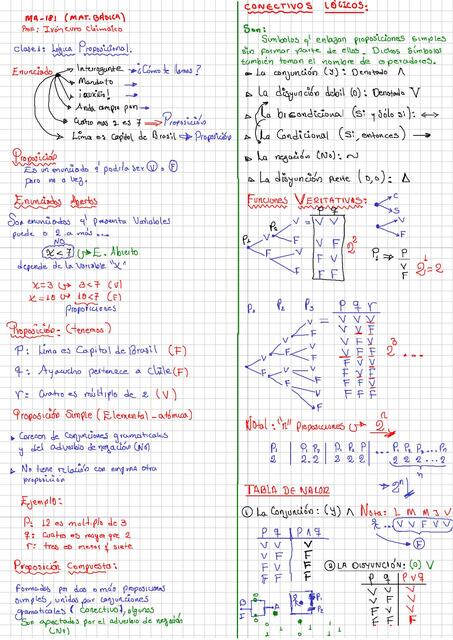 MA-181 (MAT. BÁSICA)
clase1: Lógica Proposicional.
Enunciado
Interrogante → ¿Cómo te llamas?
Mandato →
¡auxilio! →
Anda compra pan →
Cuatro mas 2 es 7 → Proposición
Lima es Capital de Brasil → Proposición
Proposición
Es un enunciado q' podría ser V o F
pero no a vez.
Enunciados Abiertos
Son enunciados q' presenta Variables
puede o 2 a más...
NO
x < 7 E. Abierto
depende de la variable "x"
x=3 3<7 (V)
x=10 10<7 (F)
Proposiciones
Proposición: (tenemos)
P: Lima es Capital de Brasil (F)
q: Ayacucho pertenece a Chile (F)
r: Cuatro es múltiplo de 2 (V)
Proposición Simple (Elemental - atómica)
Carecen de Conjunciones gramaticales
y del adverbio de negación (No)
No tiene relación con alguna otra
proposición
Ejemplo:
P: 12 es multiplo de 3
q: Cuatro es mayor que 2
r: tres es menor q' siete
Proposición Compuesta:
Formados por dos o más proposiciones
simples, unidas por conjunciones
gramaticales (Conectivo), algunos
Son afectados por el adverbio de negación
(No)
CONECTIVOS LÓGICOS:
Son:
Símbolos q' enlazan proposiciones simples
sin formar parte de ellas. Dichos Símbolos
también toman el nombre de operadores.
La conjunción (y): Denotado ∧
La disyunción débil (o): Denotado V
La bicondicional (Si y sólo si): ↔
La Condicional (Si, entonces) →
La negación (No): ~
La disyunción fuerte (o, o): Δ
Funciones Veritativas:
P q
P₁ P₂ V = V V
V F
F V
F F
2²
C
S
V
F
P₁ → P
V
F
2¹=2
P₁ P₂ P₃ P q r
V V V
V V F
V F V
V F F
F V V
F V F
F F V
F F F
2³ ...
Nota: "n" Proposiciones 2ⁿ
P₁ | P₁ P₂ | P₁ P₂ P₃ | ... P₁ P₂ P₃ ... Pₙ
2 | 2·2 | 2 2 2 | 2 2 2 ... 2
n
2ⁿ
TABLA DE VALOR
① La Conjunción: (y) ∧
P q P∧q
V V V
V F F
F V F
F F F
Nota: L M M J V
V V F V V
F
② LA DISYUNCIÓN: (o) V
P q P∨q
V V V
V F V
F V V
F F F